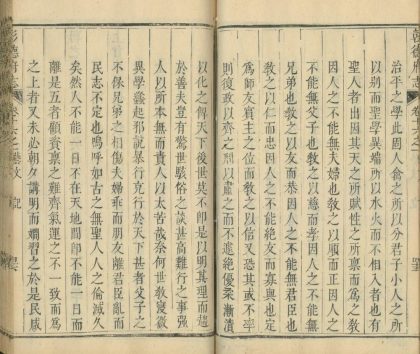 治平之學此周人會之所以分君子小人之所
以別而聖學異端所以水火而不相入者也有
聖人者出因其天之所賦性之所禀而爲之教
因人之不能無夫婦也教之以順而正因人之
不能無父子也教之以慈而孝因人之不能無
兄弟也教之以友而恭因人之不能無君臣也
教之以仁而忠因人之不能絕友而寡與也定
爲師友賓主之位而教之以信又恐其或不率
則後政以齊之刑以肅之而不進絶優柔漸漬
以化之俾天下後世莫不卽是以明其理而趨
於善夫豈有驚世駭俗之談甚高難行之事强
人以所本無而責人以太苦哉奈何世教寖微
異學蠭起邪説暴行克行於天下甚者父子之
不保兄弟之相傷夫婦乖而朋友離君臣亂而
民志不定也嗚呼如古之無聖人人之倫滅久
矣然人不能一日而不在天地間卽不能一日而
離是五者顧資禀之難齊氣運之不一致而爲
之上者又未必朝夕講明而嫺習之於是民咸
彰德府志 藝文 記